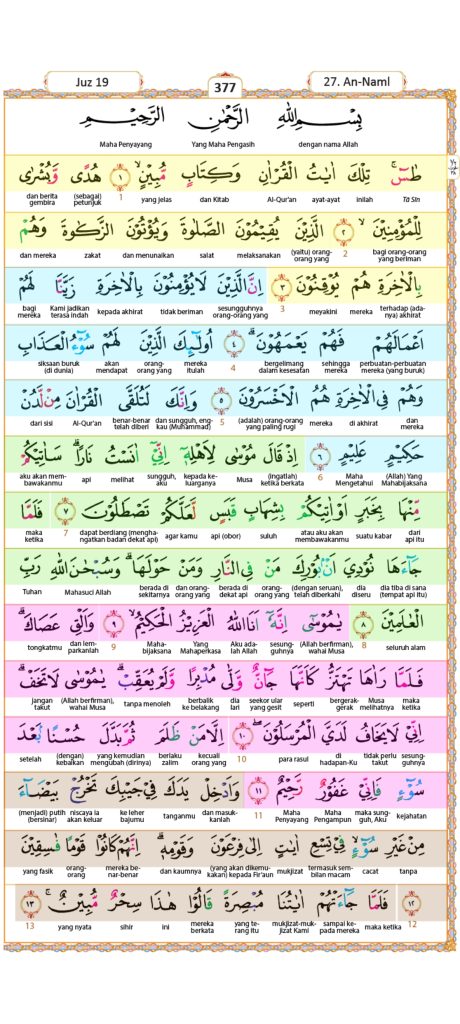 Juz 19
377
27. An-Naml
بِسْمِ اللّٰهِ الرَّحْمٰنِ الرَّحِيْمِ
dengan nama Allah Yang Maha Pengasih Maha Penyayang
طٰسۤ ۚ تِلْكَ اٰيٰتُ الْقُرْاٰنِ وَكِتَابٍ مُّبِيْنٍ ۙ ١ هُدًى وَّبُشْرٰى
Tā Sīn inilah ayat-ayat Al-Qur'an dan Kitab yang jelas 1 (sebagai) petunjuk dan berita gembira
لِلْمُؤْمِنِيْنَ ۙ ٢ الَّذِيْنَ يُقِيْمُوْنَ الصَّلٰوةَ وَيُؤْتُوْنَ الزَّكٰوةَ وَهُمْ
bagi orang-orang yang beriman 2 (yaitu) orang-orang yang melaksanakan salat dan menunaikan zakat dan mereka
بِالْاٰخِرَةِ هُمْ يُوْقِنُوْنَ ٣ اِنَّ الَّذِيْنَ لَا يُؤْمِنُوْنَ بِالْاٰخِرَةِ زَيَّنَّا لَهُمْ
terhadap (adanya) akhirat mereka meyakini 3 sesungguhnya orang-orang yang tidak beriman kepada akhirat Kami jadikan terasa indah bagi mereka
اَعْمَالَهُمْ فَهُمْ يَعْمَهُوْنَ ۗ ٤ اُولٰۤىِٕكَ الَّذِيْنَ لَهُمْ سُوْۤءُ الْعَذَابِ
perbuatan-perbuatan mereka (yang buruk) sehingga mereka bergelimang dalam kesesatan 4 mereka itulah orang-orang yang akan mendapat siksaan buruk (di dunia)
وَهُمْ فِى الْاٰخِرَةِ هُمُ الْاَخْسَرُوْنَ ٥ وَاِنَّكَ لَتُلَقَّى الْقُرْاٰنَ مِنْ لَّدُنْ
dan mereka di akhirat mereka (adalah) orang-orang yang paling rugi 5 dan sungguh, engkau (Muhammad) benar-benar telah diberi Al-Qur'an dari sisi
حَكِيْمٍ عَلِيْمٍ ٦ اِذْ قَالَ مُوْسٰى لِاَهْلِهٖٓ اِنِّيْٓ اٰنَسْتُ نَارًاۗ سَاٰتِيْكُمْ
(Allah) Yang Mahabijaksana Maha Mengetahui 6 (Ingatlah) ketika berkata Musa kepada keluarganya sungguh, aku melihat api aku akan membawakanmu
مِّنْهَا بِخَبَرٍ اَوْ اٰتِيْكُمْ بِشِهَابٍ قَبَسٍ لَّعَلَّكُمْ تَصْطَلُوْنَ ٧ فَلَمَّا
dari api itu suatu kabar atau aku akan membawakanmu suluh api (obor) agar kamu dapat berdiang (menghangatkan badan dekat api) 7 maka ketika
جَاۤءَهَا نُوْدِيَ اَنْۢ بُوْرِكَ مَنْ فِى النَّارِ وَمَنْ حَوْلَهَاۗ وَسُبْحٰنَ اللّٰهِ رَبِّ
dia tiba di sana (tempat api itu) dia diseru (dengan seruan), telah diberkahi orang-orang yang berada di dekat api dan orang-orang yang berada di sekitarnya Mahasuci Allah Tuhan
الْعٰلَمِيْنَ ٨ يٰمُوْسٰٓى اِنَّهٗٓ اَنَا اللّٰهُ الْعَزِيْزُ الْحَكِيْمُ ۙ ٩ وَاَلْقِ عَصَاكَ ۗ
seluruh alam 8 (Allah berfirman), wahai Musa sesungguhnya Aku adalah Allah Yang Mahaperkasa Mahabijaksana 9 dan lemparkanlah tongkatmu
فَلَمَّا رَاٰهَا تَهْتَزُّ كَاَنَّهَا جَاۤنٌّ وَّلّٰى مُدْبِرًا وَّلَمْ يُعَقِّبْۗ يٰمُوْسٰى لَا تَخَفْۗ
maka ketika Musa melihatnya bergerak-gerak seperti seekor ular yang gesit dia lari berbalik ke belakang tanpa menoleh (Allah berfirman), wahai Musa jangan takut
اِنِّيْ لَا يَخَافُ لَدَيَّ الْمُرْسَلُوْنَ ۖ ١٠ اِلَّا مَنْ ظَلَمَ ثُمَّ بَدَّلَ حُسْنًاۢ بَعْدَ
sesungguhnya tidak perlu takut di hadapan-Ku para rasul 10 kecuali orang yang berlaku zalim yang kemudian mengubah (dirinya) (dengan) kebaikan setelah
سُوْۤءٍ فَاِنِّيْ غَفُوْرٌ رَّحِيْمٌ ١١ وَاَدْخِلْ يَدَكَ فِيْ جَيْبِكَ تَخْرُجْ بَيْضَاۤءَ
kejahatan maka sungguh, Aku Maha Pengampun Maha Penyayang 11 dan masukkanlah tanganmu ke leher bajumu niscaya ia akan keluar (menjadi) putih (bersinar)
مِنْ غَيْرِ سُوْۤءٍۙ فِيْ تِسْعِ اٰيٰتٍ اِلٰى فِرْعَوْنَ وَقَوْمِهٖۗ اِنَّهُمْ كَانُوْا قَوْمًا فٰسِقِيْنَ
tanpa cacat termasuk sembilan macam mukjizat (yang akan dikemukakan) kepada Fir'aun dan kaumnya mereka benar-benar orang-orang yang fasik
١٢ فَلَمَّا جَاۤءَتْهُمْ اٰيٰتُنَا مُبْصِرَةً قَالُوْا هٰذَا سِحْرٌ مُّبِيْنٌ ۚ ١٣
12 maka ketika sampai kepada mereka mukjizat-mukjizat Kami yang terang itu mereka berkata ini sihir yang nyata 13